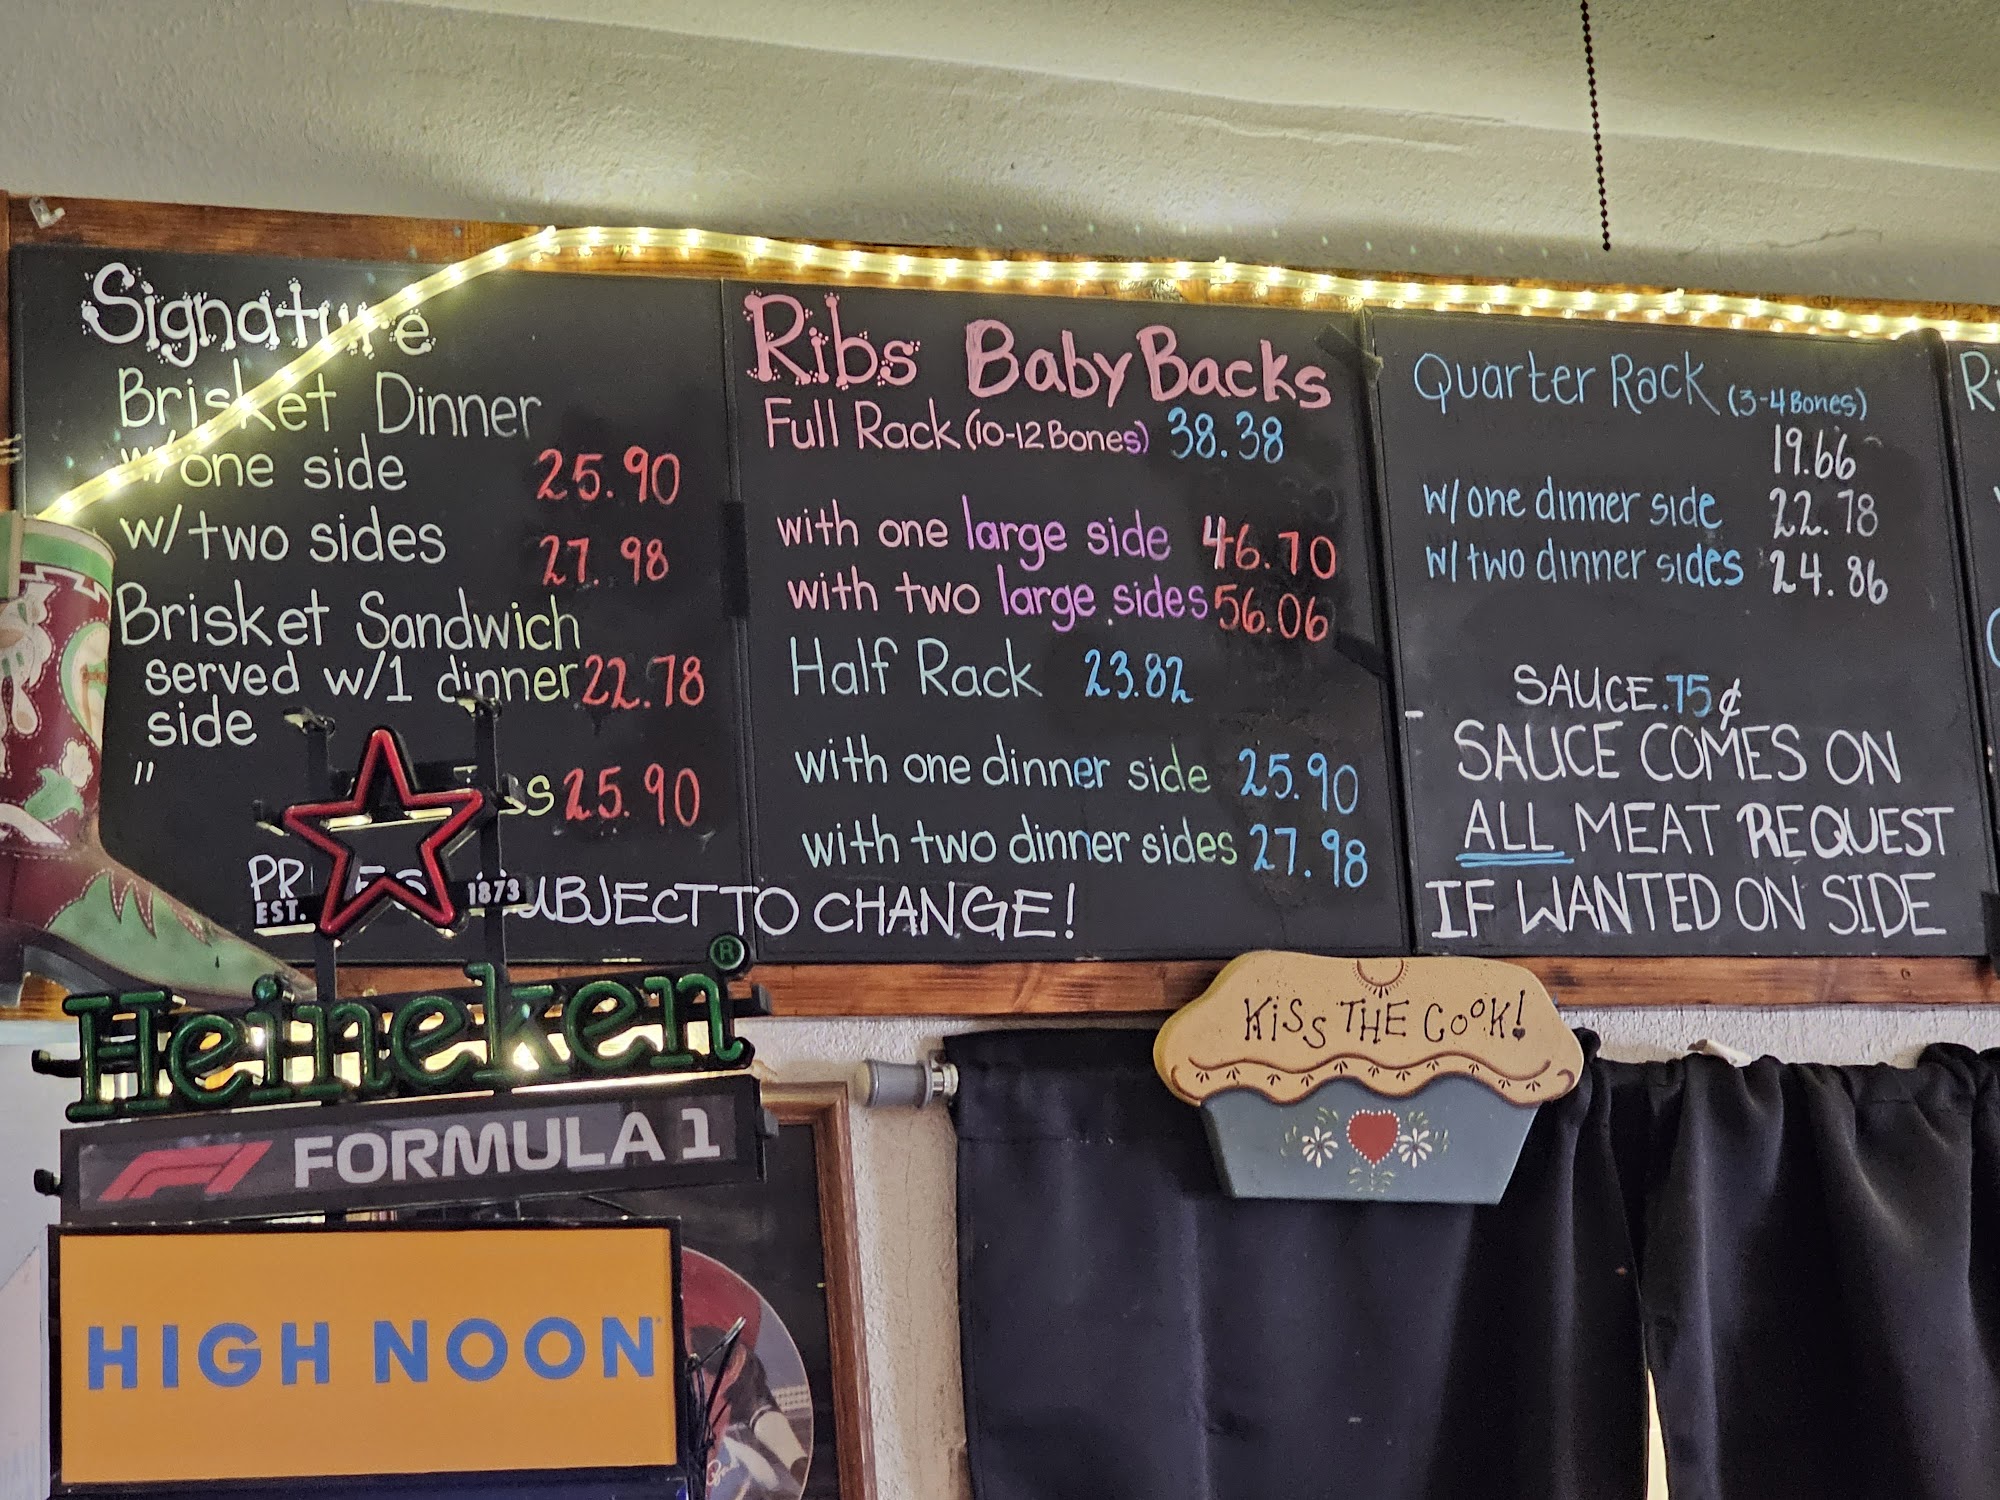 Signature
Brisket Dinner
w/one side 25.90
w/two sides 27.98
Brisket Sandwich
served w/1 dinner 22.78
side
" 25.90
SUBJECT TO CHANGE!
Ribs Baby Backs
Full Rack (10-12 Bones) 38.38
with one large side 46.70
with two large sides 56.06
Half Rack 23.82
with one dinner side 25.90
with two dinner sides 27.98
Quarter Rack (3-4 Bones)
19.66
w/one dinner side 22.78
w/two dinner sides 24.86
SAUCE .75¢
SAUCE COMES ON
ALL MEAT REQUEST
IF WANTED ON SIDE
EST. 1873
Heineken®
F1 FORMULA 1
HIGH NOON
KiSS THE COOK!